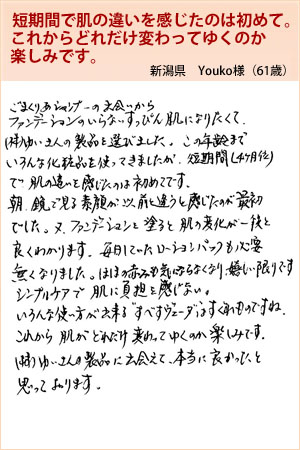 短期間で肌の違いを感じたのは初めて。
これからどれだけ変わってゆくのか
楽しみです。
新潟県 Youko様（61歳）
ごまくりぁジャンプーの出会いから
ファンデーションのいらないすっぴん肌になりたくて、
(株)ゆいまんの製品を選びました。この年齢まで
いろんな化粧品を使ってきましたが、短期間(4ヶ月位)
で肌の違いを感じたのは初めてです。
朝、鏡で見る素顔が以前と違うと感じたのが最初
でした。又、ファンデーションを塗ると肌の変化が一段と
良くわかります。毎日していたローションパックも必要
無くなりました。ほほの赤みも気にならなくなり、嬉しい限りです
シンプルケアで肌に負担を感じない。
いろんな使い方が出来る「すべすべヴェーダ」はすぐれものですね。
これから肌がどれだけ変わってゆくのか楽しみです。
(株)ゆいまんの製品に出会えて、本当に良かったと
思っております。